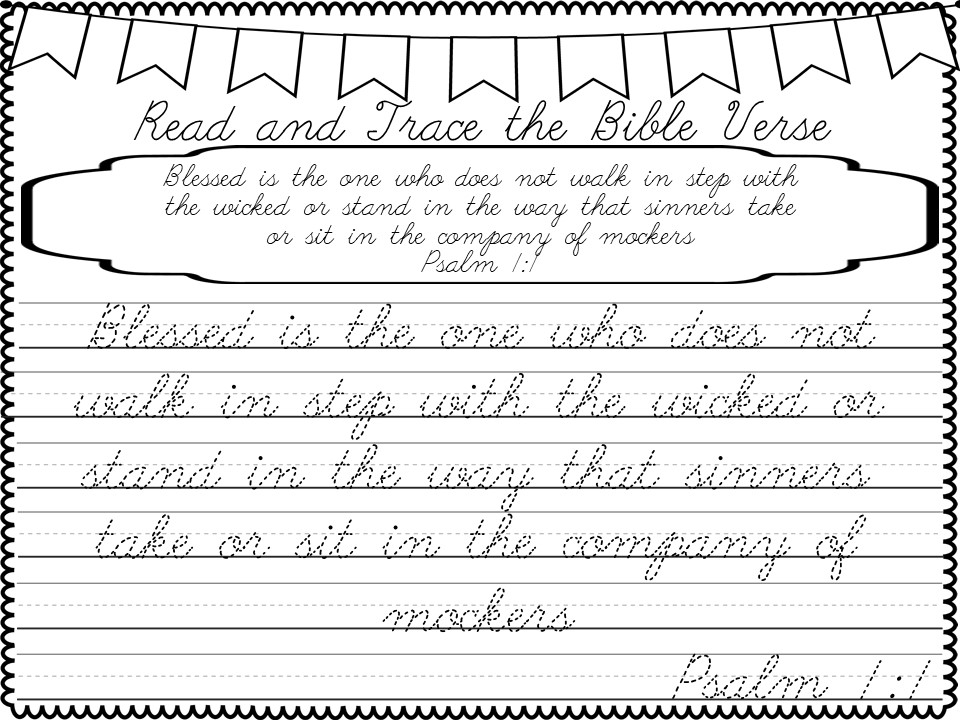 Read and Trace the Bible Verse
Blessed is the one who does not walk in step with
the wicked or stand in the way that sinners take
or sit in the company of mockers
Psalm 1:1
Blessed is the one who does not
walk in step with the wicked or
stand in the way that sinners
take or sit in the company of
mockers
Psalm 1:1